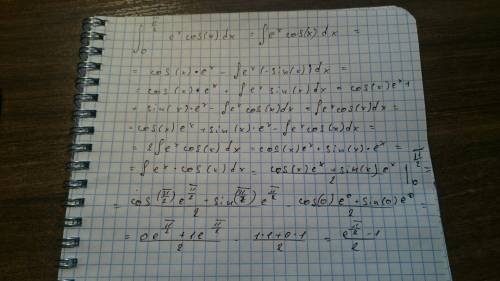 ∫₀^{π/2} eˣ cos(x) dx = ∫ eˣ cos(x) dx =
= cos(x)·eˣ - ∫ eˣ (-sin(x)) dx =
= cos(x)·eˣ + ∫ eˣ sin(x) dx = cos(x) eˣ +
+ sin(x)·eˣ - ∫ eˣ cos(x) dx = ∫ eˣ cos(x) dx =
= cos(x) eˣ + sin(x)·eˣ - ∫ eˣ cos(x) dx =
= 2∫ eˣ cos(x) dx = cos(x) eˣ + sin(x)·eˣ =
= ∫ eˣ·cos(x) dx = (cos(x) eˣ + sin(x) eˣ)/2 |₀^{π/2} =
= (cos(π/2) e^{π/2} + sin(π/2) e^{π/2})/2 - (cos(0) e⁰ + sin(0) e⁰)/2 =
= (0 e^{π/2} + 1 e^{π/2})/2 - (1·1 + 0·1)/2 = (e^{π/2} - 1)/2